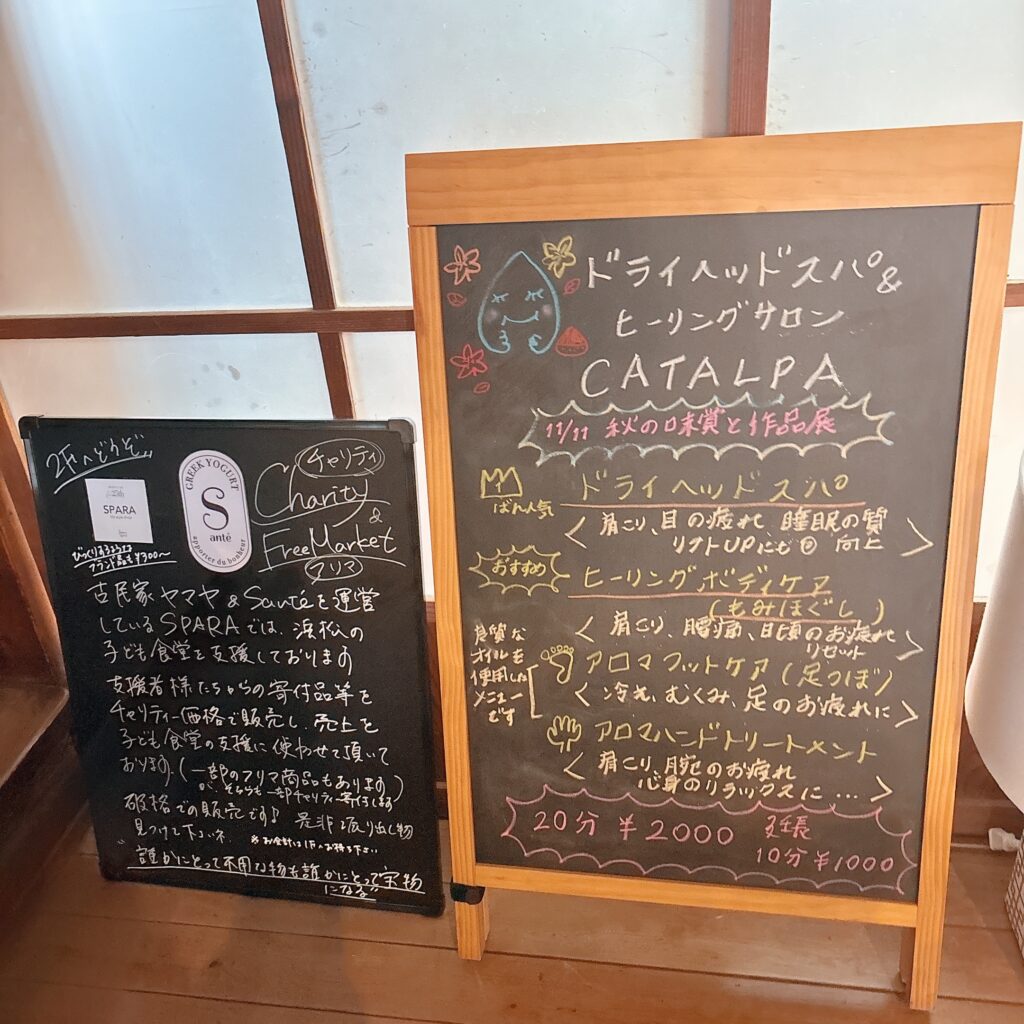 2Fへどうぞ
SPARA
びっくりするような
ブランド品も¥300〜
GREEK YOGURT
S
anté
apporter du bonheur
チャリティ
Charity
&
FreeMarket
フリマ
古民家ヤマヤ&Santéを運営
しているSPARAでは、浜松の
子ども食堂を支援しております
支援者様たちからの寄付品等を
チャリティー価格で販売し、売上を
子ども食堂の支援に使わせて頂いて
おります。(一部のフリマ商品もあります)
そちらも一部チャリティー寄付します
破格での販売です♪ 是非掘り出し物
見つけて下さいネ
※お会計は1Fへお持ち下さい
"誰かにとって不用な物も誰かにとって宝物
になる"
ドライヘッドスパ&
ヒーリングサロン
CATALPA
11/11 秋の味賞と作品展
ばん人気
ドライヘッドスパ
<肩こり、目の疲れ、睡眠の質
リフトUPにも◎ 向上>
おすすめ
ヒーリングボディケア
(もみほぐし)
<肩こり、腰痛、日頃のお疲れ
リセット>
良質な
オイルを
使用した
メニュー
です
アロマフットケア(足つぼ)
<冷え、むくみ、足のお疲れに>
アロマハンドトリートメント
<肩こり、腕のお疲れ
心身のリラックスに…>
20分 ¥2000 延長
10分¥1000